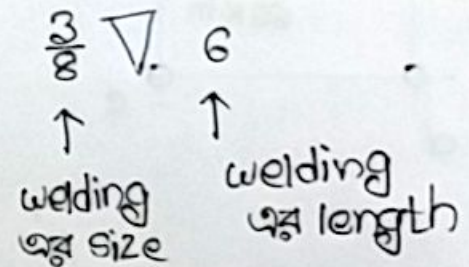 3/8 ▽. 6
welding
এর size
welding
এর length